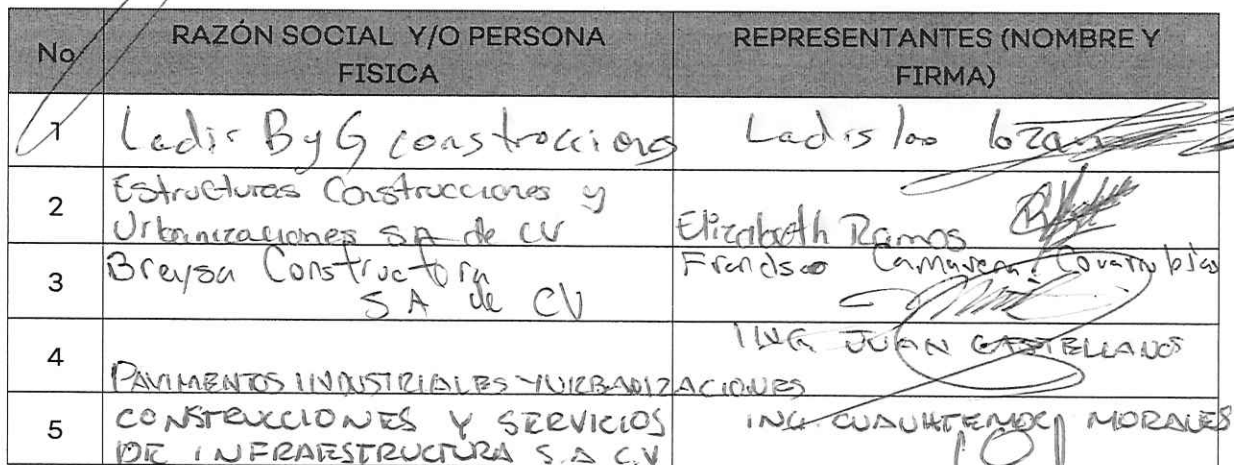 No.
RAZÓN SOCIAL Y/O PERSONA
FISICA
REPRESENTANTES (NOMBRE Y
FIRMA)
1
Ladir ByG construcciong
Ladislao
2
Estructuras Construcciones y
Urbanizaciones SA de CV
Elizabeth Ramos
3
Breysa Constructora
SA de CV
Francisco Camarena Covarrubias
4
PAVIMENTOS INDUSTRIALES Y URBANIZACIONES
ING. JUAN CASTELLANOS
5
CONSTRUCCIONES Y SERVICIOS
DE INFRAESTRUCTURA S.A C.V
ING. CUAUHTEMOC MORALES